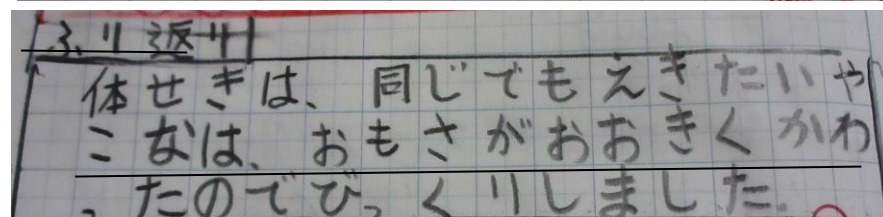 ふり返り
体せきは、同じでもえきたいや
こなは、おもさがおおきくかわ
ったのでびっくりしました。